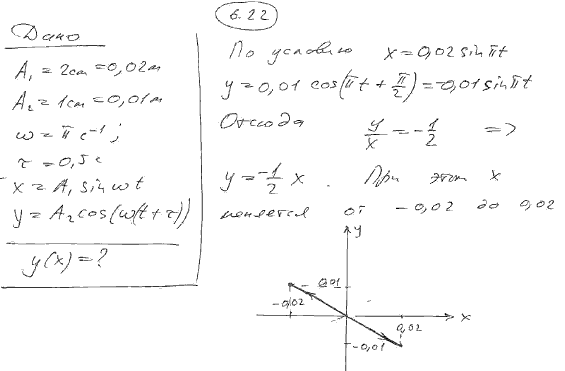 6.22
Дано
A₁ = 2cm = 0,02м
A₂ = 1cm = 0,01м
ω = π c⁻¹;
τ = 0,5 c
x = A₁ sin ωt
y = A₂ cos(ω(t + τ))
y(x) = ?
По условию x = 0,02 sin πt
y = 0,01 cos(πt + π/2) = -0,01 sin πt
Отсюда y/x = -1/2 =>
y = -1/2 x. При этом x
меняется от -0,02 до 0,02
y
0,01
-0,02
0,02
x
-0,01